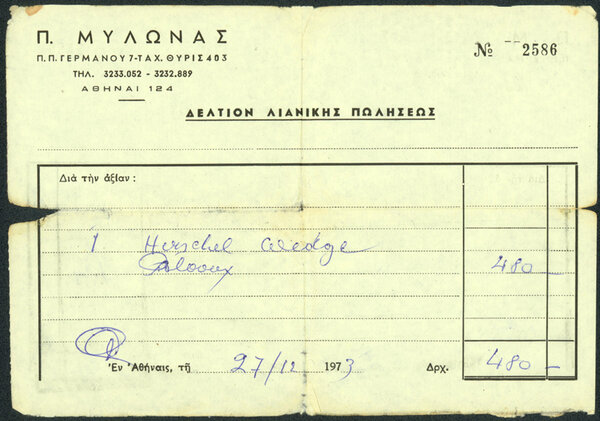 Π. ΜΥΛΩΝΑΣ
Π.Π. ΓΕΡΜΑΝΟΥ 7-ΤΑΧ. ΘΥΡΙΣ 403
ΤΗΛ. 3233.052 - 3232.889
ΑΘΗΝΑΙ 124
№ 2586
ΔΕΛΤΙΟΝ ΛΙΑΝΙΚΗΣ ΠΩΛΗΣΕΩΣ
Διὰ τὴν ἀξίαν :
1 Herschel Wedge
480 –
Ἐν Ἀθήναις, τῇ 27/12 1973 Δρχ. 480 –